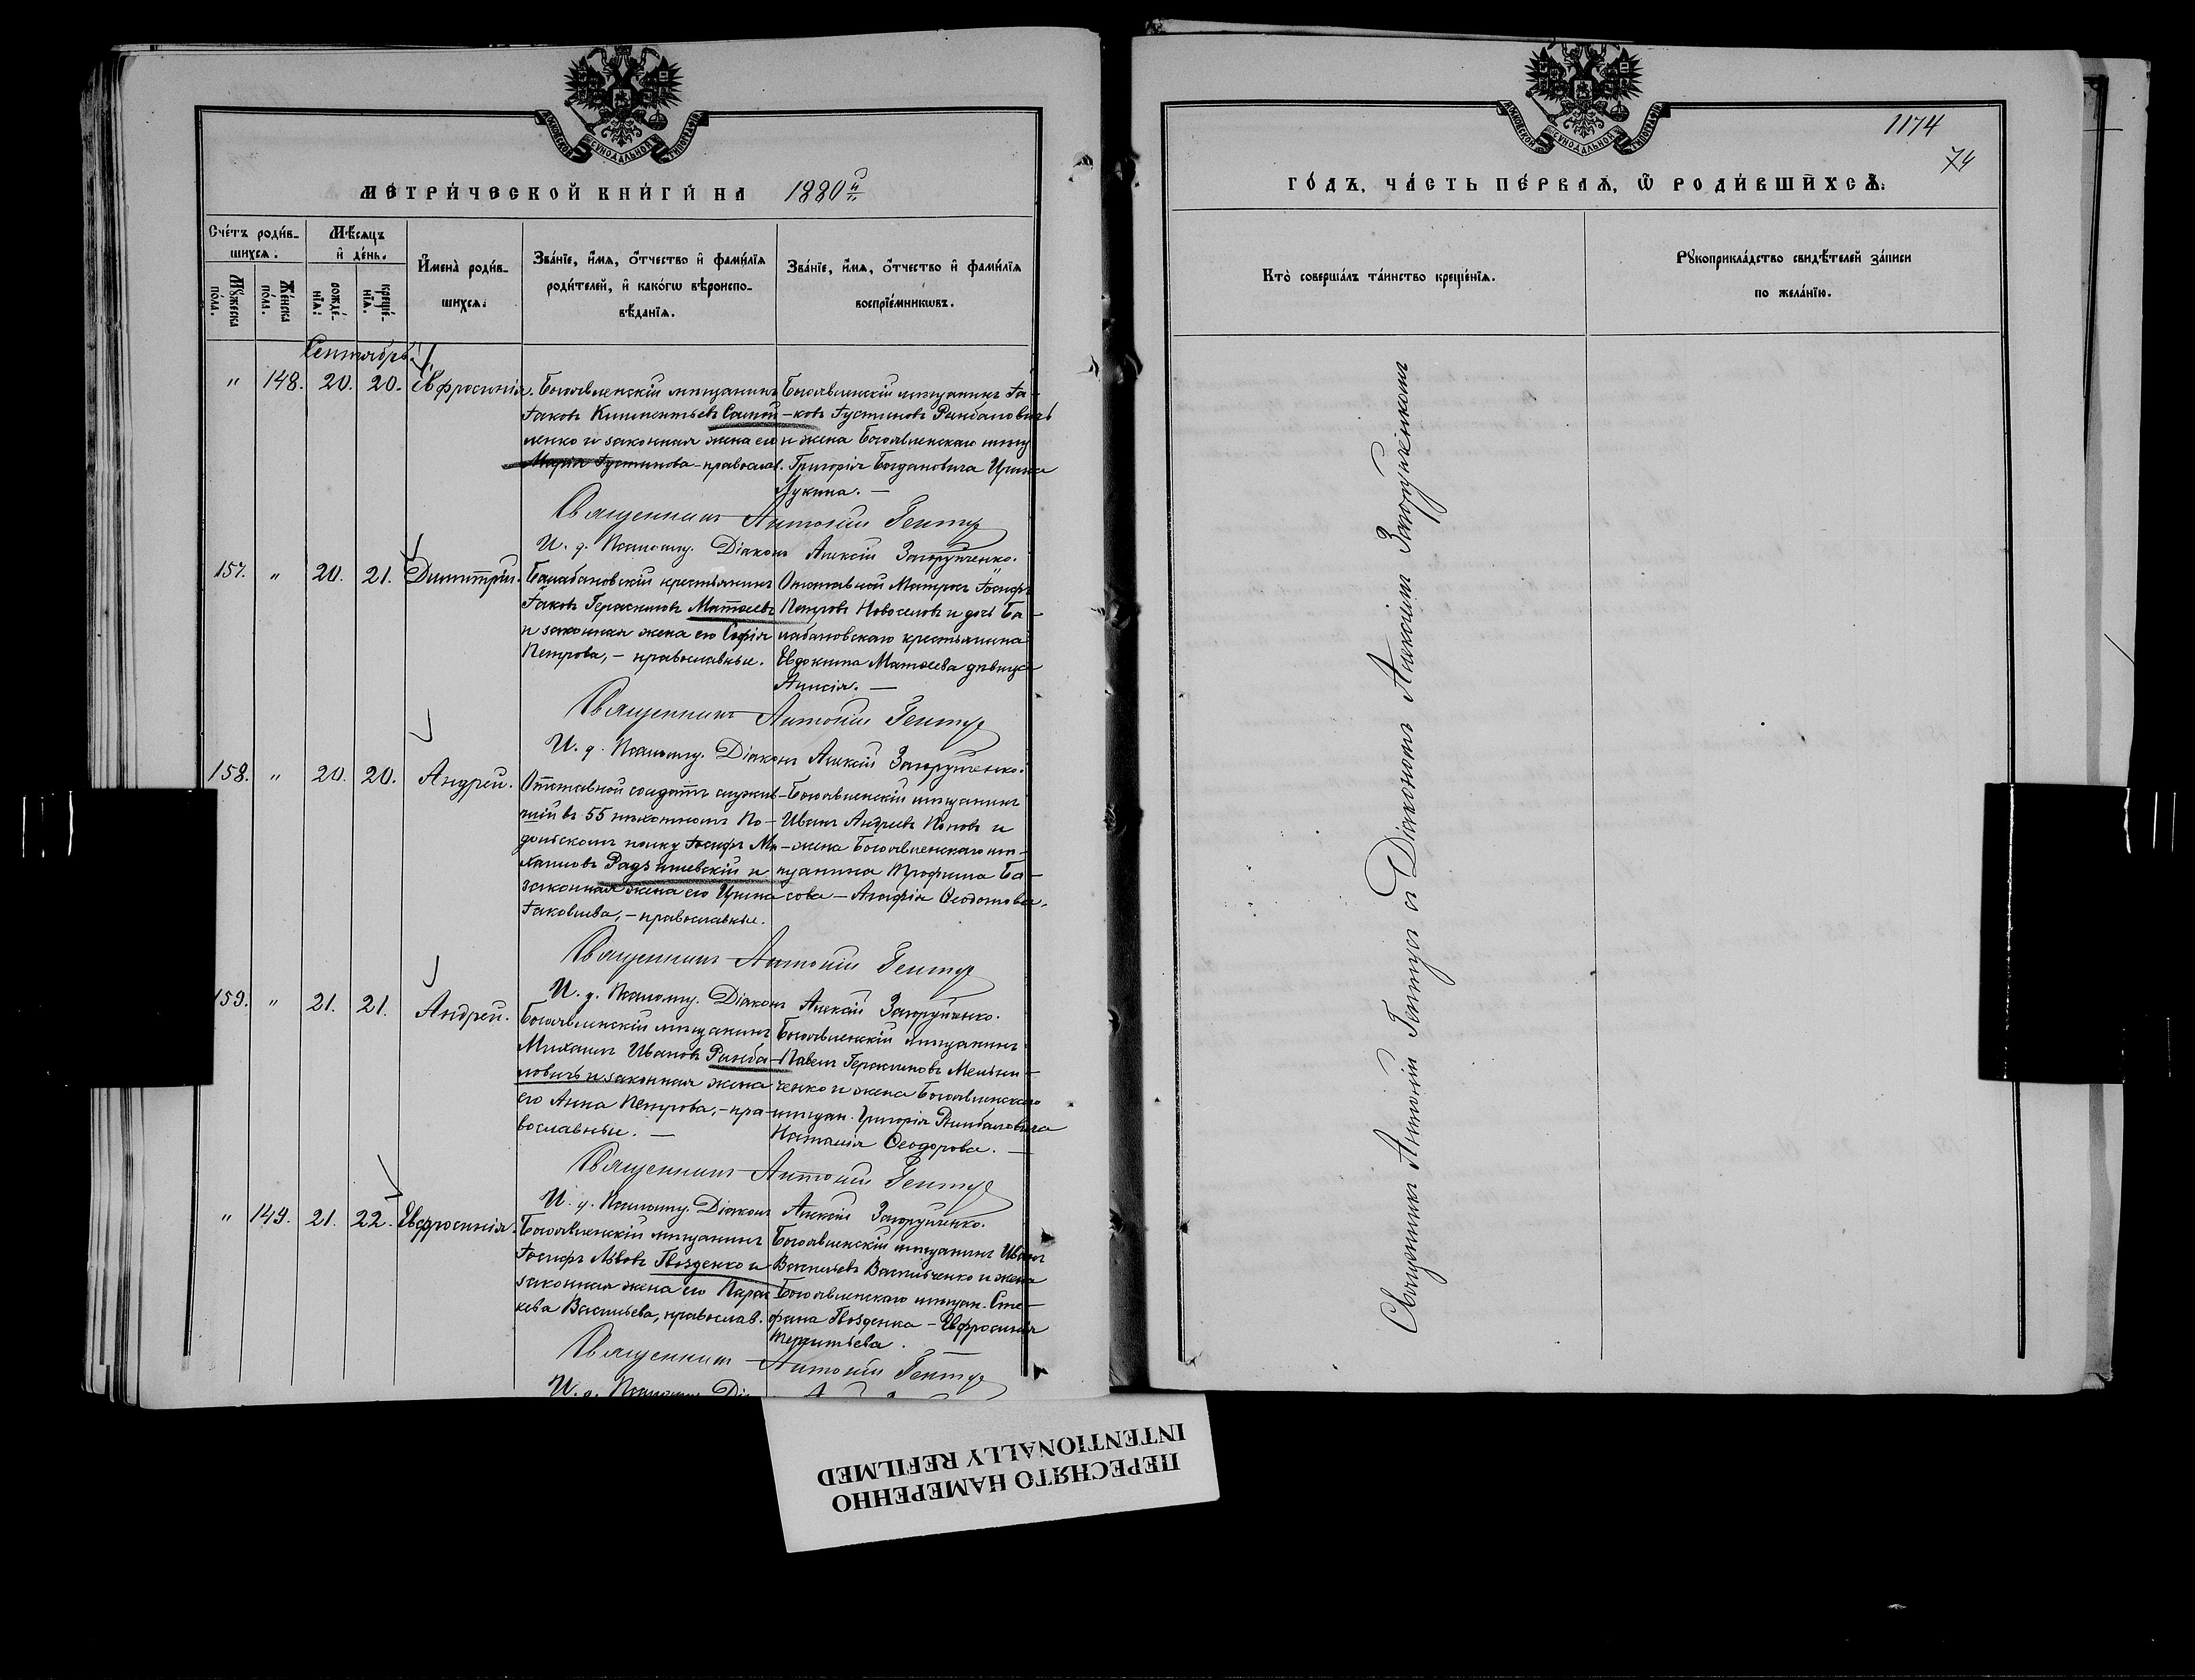 МОСКОВСКОЙ СѴНОДАЛЬНОЙ ТИПОГРАФІИ
МЕТРИ́ЧЕСКОЙ КНИ́ГИ НА 1880й
Сче́тъ роди́в-
шихсѧ.
Мѣ́сѧцъ
и҆ де́нь.
Мꙋ́жеска
по́ла.
Же́нска
по́ла.
рожде́-
нїѧ.
креще́-
нїѧ.
И҆мена̀ роди́в-
шихсѧ.
Зва́нїе, и҆́мѧ, о҆́тчество и҆ фами́лїѧ
роди́телей, и҆ како́гѡ вѣроиспо-
вѣ́данїѧ.
Зва́нїе, и҆́мѧ, о҆́тчество и҆ фами́лїѧ
воспрїе́мникѡвъ.
Сентябрь.
" 148. 20. 20. Евфросинія.
Богоявленскій мѣщанинъ
Іаковъ Климентьевъ Самой-
ленко и законная жена его
Марія Іустинова - православ.
Богоявленскій мѣщанинъ Іа-
ковъ Іустиновъ Рынбаловичъ
и жена Богоявленскаго мѣщ.
Григорія Богдановича Ирина
Лукина. —
Священникъ Антоній Гентуръ
И. д. Псаломщ. Діаконъ Алексій Загоруйченко.
157. " 20. 21. Димитрій.
Балабановскій крестьянинъ
Іаковъ Герасимовъ Матвеевъ
и законная жена его Софія
Петрова, - православные.
Отставной Матросъ Іосифъ
Петровъ Новоселовъ и дочь Ба-
лабановскаго крестьянина
Евдокима Матвеева дѣвица
Анисія. —
Священникъ Антоній Гентуръ
И. д. Псаломщ. Діаконъ Алексій Загоруйченко.
158. " 20. 20. Андрей.
Отставной солдатъ служив-
шій въ 55 пѣхотномъ По-
дольскомъ полку Іосифъ Ми-
хаиловъ Радзишевскій и
законная жена его Ирина
Іаковлева, - православные.
Богоявленскій мѣщанинъ
Иванъ Андреевъ Поповъ и
жена Богоявленскаго мѣ-
щанина Трофима Ба-
сова - Агафія Ѳеодотова.
Священникъ Антоній Гентуръ
И. д. Псаломщ. Діаконъ Алексій Загоруйченко.
159. " 21. 21. Андрей.
Богоявленскій мѣщанинъ
Михаилъ Ивановъ Рынба-
ловичъ и законная жена
его Анна Петрова, - пра-
вославные. —
Богоявленскій мѣщанинъ
Павелъ Герасимовъ Мельни-
ченко и жена Богоявленскаго
мѣщан. Григорія Рынбаловича
Наталія Ѳеодорова. —
Священникъ Антоній Гентуръ
И. д. Псаломщ. Діаконъ Алексій Загоруйченко.
" 149. 21. 22. Евфросинія.
Богоявленскій мѣщанинъ
Іосифъ Львовъ Гвозденко и
законная жена его Парас
кева Васильева, православ.
Богоявленскій мѣщанинъ Иванъ
Васильевъ Васильченко и жена
Богоявленскаго мѣщан. Сте-
фана Гвозденка - Евфросинія
Терентьева.
Священникъ Антоній Гентуръ
И. д. Псаломщ.
МОСКОВСКОЙ СѴНОДАЛЬНОЙ ТИПОГРАФІИ
1174
74
ГО́ДЪ, ЧА́СТЬ ПЕ́РВАѦ, Ѿ РОДИ́ВШИХСѦ:
Кто̀ соверша́лъ та́инство креще́нїѧ.
Рꙋкоприкла́дство свидѣ́телей за́писи
по жела́нїю.
Священникъ Антоній Гентуръ съ Діакономъ Алексіемъ Загоруйченкомъ
ПЕРЕСНЯТО НАМЕРЕННО
INTENTIONALLY REFILMED